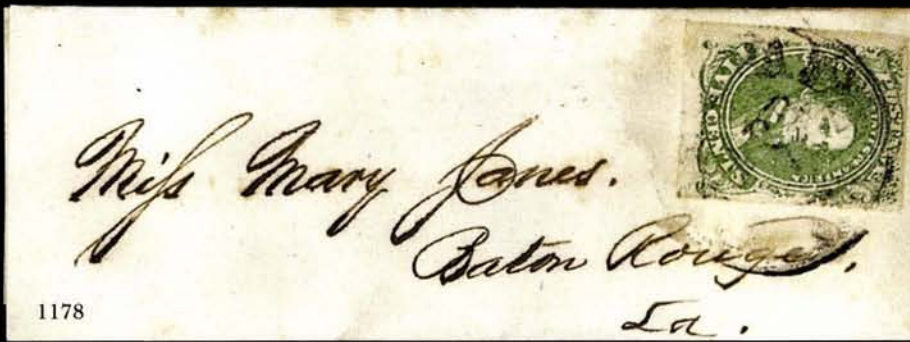 Miss Mary Janes.
Baton Rouge.
La.
1178